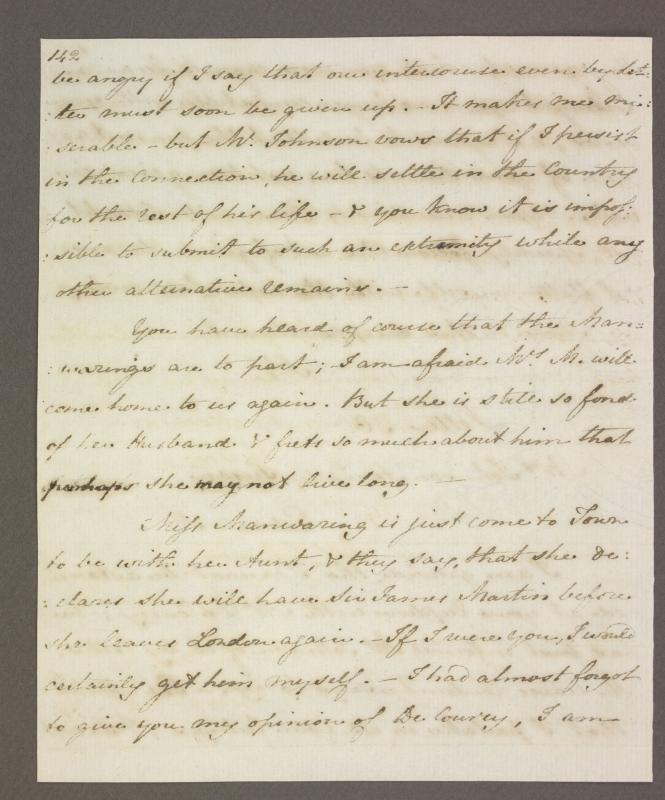 142
be angry if I say that our intercourse even by let:
:ter must soon be given up. - It makes me mi:
:serable - but Mr. Johnson vows that if I persist
in the connection, he will settle in the Country
for the rest of his life - & you know it is impos:
:sible to submit to such an extremity while any
other alternative remains. -
You have heard of course that the Man:
:warings are to part; I am afraid Mrs. M. will
come home to us again. But she is still so fond
of her Husband & frets so much about him that
perhaps she may not live long. -
Miss Manwaring is just come to Town
to be with her Aunt, & they say, that she de:
:clares she will have Sir James Martin before
she leaves London again. - If I were you, I would
certainly get him myself. - I had almost forgot
to give you my opinion of De Courcy, I am